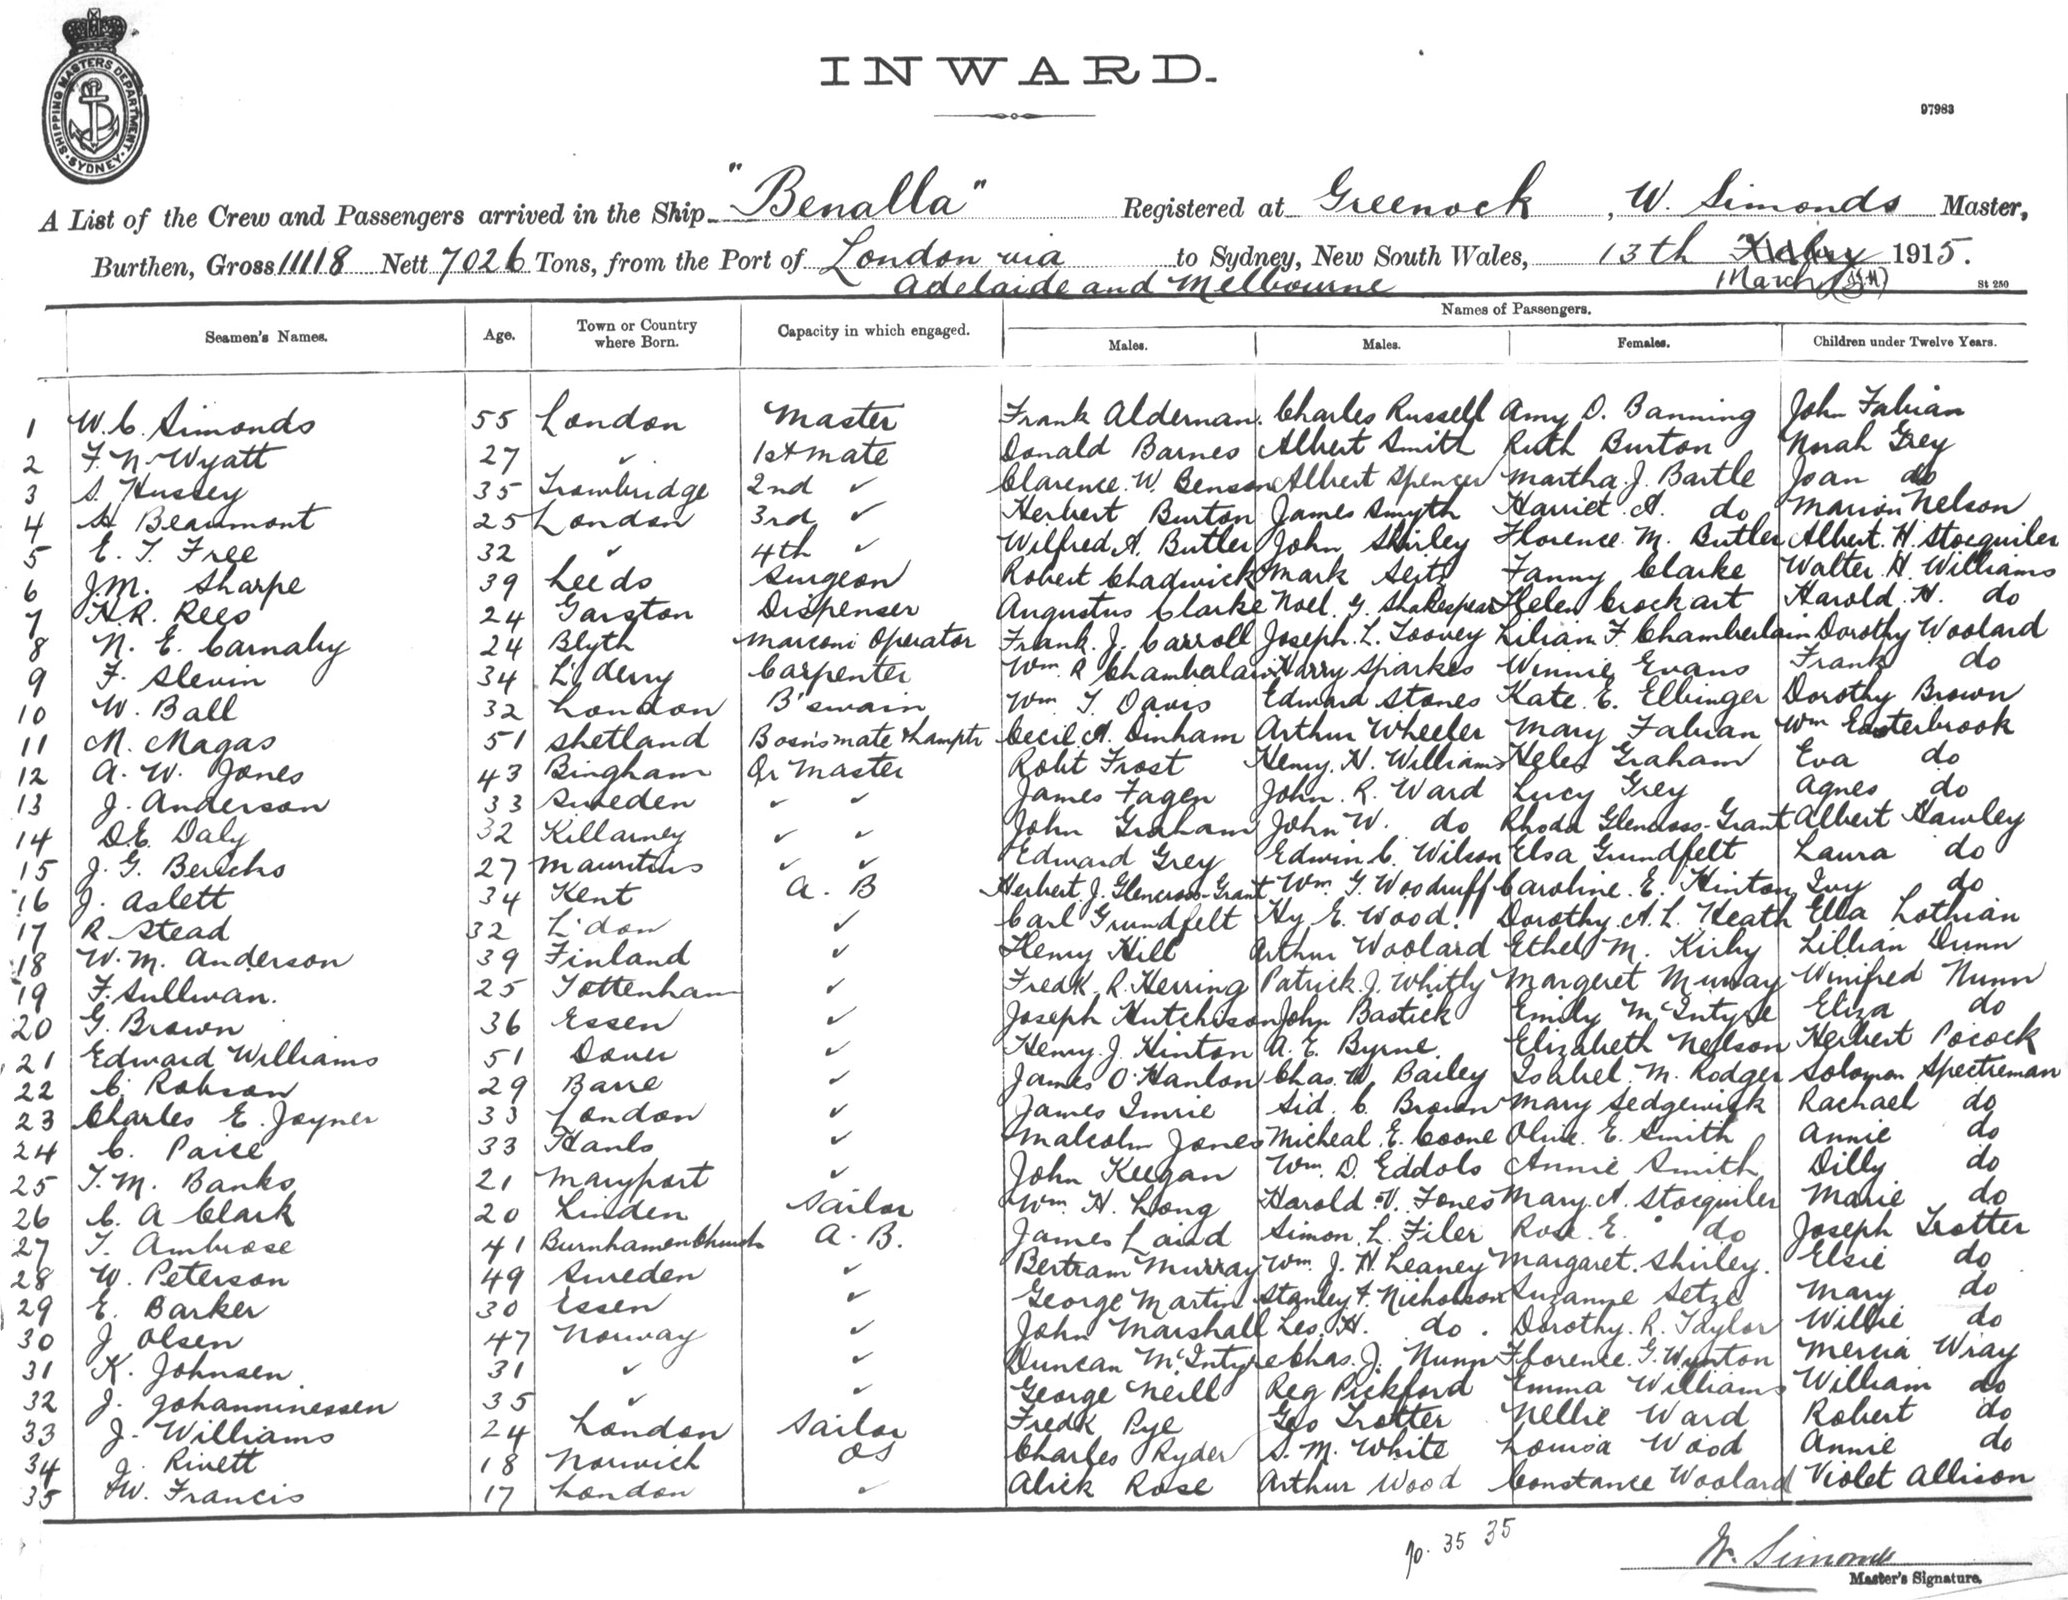 SHIPPING MASTERS DEPARTMENT · SYDNEY ·
INWARD.
97983
A List of the Crew and Passengers arrived in the Ship "Benalla" Registered at Greenock, W. Simonds Master,
Burthen, Gross 11118 Nett 7026 Tons, from the Port of London via to Sydney, New South Wales, 13th 1915.
Adelaide and Melbourne March St 250
Names of Passengers.
Seamen's Names. Age. Town or Country where Born. Capacity in which engaged. Males. Males. Females. Children under Twelve Years.
1 W. C. Simonds 55 London Master Frank Alderman. Charles Russell Amy D. Banning John Fabian
2 F. N. Wyatt 27 ✓ 1st mate Donald Barnes Albert Smith Ruth Burton Norah Grey
3 S. Hussey 35 Trowbridge 2nd ✓ Clarence. W. Benson Albert Spencer Martha. J. Bartle Joan do
4 Beaumont 25 London 3rd ✓ Herbert Burton James Smyth Harriet. A. do Marion Nelson
5 E. T. Free 32 ✓ 4th ✓ Wilfred A. Butler John Shirley Florence. M. Butler Albert. H. Stocquiler
6 J. M. Sharpe 39 Leeds Surgeon Robert Chadwick Mark Seitz Fanny Clarke Walter. H. Williams
7 H. R. Rees 24 Garston Dispenser Augustus Clarke Noel. G. Shakespear Helen Crockart Harold. H. do
8 N. E. Carnaby 24 Blyth Marconi Operator Frank. J. Carroll Joseph. L. Toovey Lilian F. Chamberlain Dorothy Woolard
9 F. Slevin 34 L'derry Carpenter Wm. R Chamberlain Harry Sparkes Winnie Evans Frank do
10 W. Ball 32 London B'swain Wm T. Davis Edward Stones Kate. E. Elbinger Dorothy Brown
11 M. Magas 51 Shetland Bosn's mate & lamptr Cecil. A. Dinham Arthur Wheeler Mary Fabian Wm Easterbrook
12 A. W. Jones 43 Bingham Qr Master Robt Frost Henry. H. Williams Helen Graham Eva do
13 J. Anderson 33 Sweden ✓ ✓ James Fagen John. R. Ward Lucy Grey Agnes do
14 D. E. Daly 32 Killarney ✓ ✓ John Graham John W. do Rhoda Glencross-Grant Albert Hawley
15 J. G. 27 Mauritius ✓ ✓ Edward Grey Edwin C. Wilson Elsa Grundfelt Laura do
16 J. Aslett 34 Kent A. B Herbert. J. Glencross-Grant Wm. G. Woodruff Caroline. E. Hinton Ivy do
17 R. Stead 32 L'don ✓ Carl Grundfelt Hy. E. Wood. Dorothy. A. L. Heath Ella Lothian
18 W. M. Anderson 39 Finland ✓ Henry Hill Arthur Woolard Ethel M. Kirby Lillian Dunn
19 F. Sullivan. 25 Tottenham ✓ Fredk. R. Herring Patrick. J. Whitly Margeret Murray Winifred Nunn
20 G. Brown 36 Essen ✓ Joseph Hutchison John Bastick Emily McIntyre Eliza do
21 Edward Williams 51 Dover ✓ Henry. J. Hinton A. E. Byrne. Elizabeth Neilson Herbert Pocock
22 C. Robson 29 Barre ✓ James O'Hanlon Chas. W. Bailey Isabel. M. Rodger Solomon Spectreman
23 Charles E. Joyner 33 London ✓ James Imrie Sid. C. Brown Mary Sedgewick Rachael do
24 C. Paice 33 Hants ✓ Malcolm Jones Micheal. E. Coone Olive. E. Smith Annie do
25 T. M. Banks 21 Maryport ✓ John Keegan Wm. D. Eddols Annie Smith Dilly do
26 C. A Clark 20 Linden Sailor Wm. H. Long Harold. V. Jones Mary. A. Stocquiler Marie do
27 T. Ambrose 41 Burnham on Crouch A. B. James Laird Simon. L. Filer Rose. E. do Joseph Trotter
28 W. Peterson 49 Sweden ✓ Bertram Murray Wm. J. H. Leaney Margaret. Shirley. Elsie do
29 E. Barker 30 Essen ✓ George Martin Stanley F. Nicholson Suzanne Setze Mary do
30 J Olsen 47 Norway ✓ John Marshall Les. H. do. Dorothy. R. Taylor Willie do
31 K. Johnsen 31 ✓ ✓ Duncan McIntyre Chas. J. Nunn Florence. G. Wynton Mercia Wray
32 J. Johanninessen 35 ✓ ✓ George Neill Reg Pickford Emma Williams William do
33 J. Williams 24 London Sailor Fredk Pye Geo Trotter Nellie Ward Robert do
34 J. Rivett 18 Norwich OS Charles Ryder S. M. White Louisa Wood Annie do
35 W. Francis 17 London ✓ Alick Rose Arthur Wood Constance Woolard Violet Allison
35 35
W. Simonds
Master's Signature.